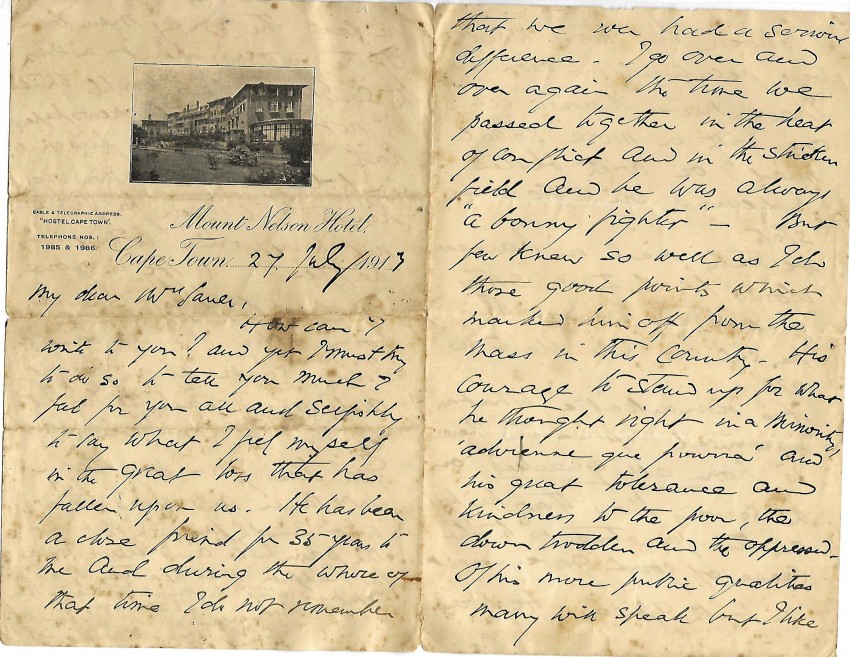 CABLE & TELEGRAPHIC ADDRESS.
"HOSTEL, CAPE TOWN".
TELEPHONE NOS.:
1985 & 1986.
Mount Nelson Hotel,
Cape Town. 27 July 1913
My dear Mrs Sauer,
How can I
write to you? and yet I must try
to do so to tell you much I
feel for you all and selfishly
to say what I feel myself
in the great loss that has
fallen upon us. He has been
a close friend for 35 years to
me and during the whole of
that time I do not remember
that we ever had a serious
difference. I go over and
over again the time we
passed together in the heat
of conflict and in the stricken
field and he was always
"a bonny fighter" - But
few knew so well as I do
those good points which
marked him off from the
mass in this country. His
courage to stand up for what
he thought right in a minority,
'advienne que pourra' and
his great tolerance and
kindness to the poor, the
down trodden and the oppressed.
Of his more public qualities
many will speak but I like